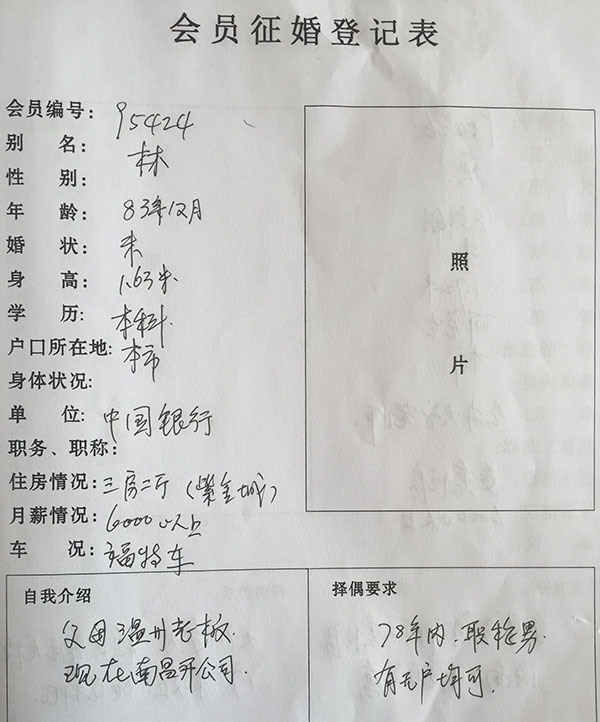 会员征婚登记表
会员编号: 95424
别 名: 林
性 别:
年 龄: 83年12月
婚 状: 未
身 高: 1.63米
学 历: 本科
户口所在地: 本市
身体状况:
单 位: 中国银行
职务、职称:
住房情况: 三房二厅(紫金城)
月薪情况: 6000以上
车 况: 福特车
照
片
自我介绍
父母温州老板.
现在南昌开公司.
择偶要求
78年内.职称男.
有无户均可.